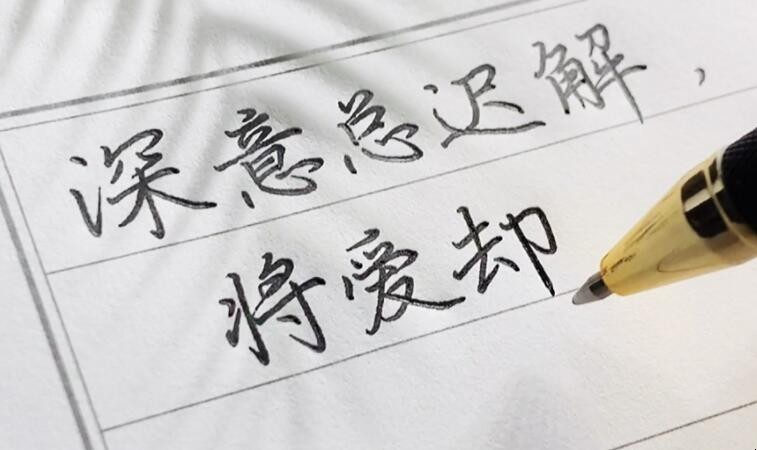 深意总迟解，
将爱却